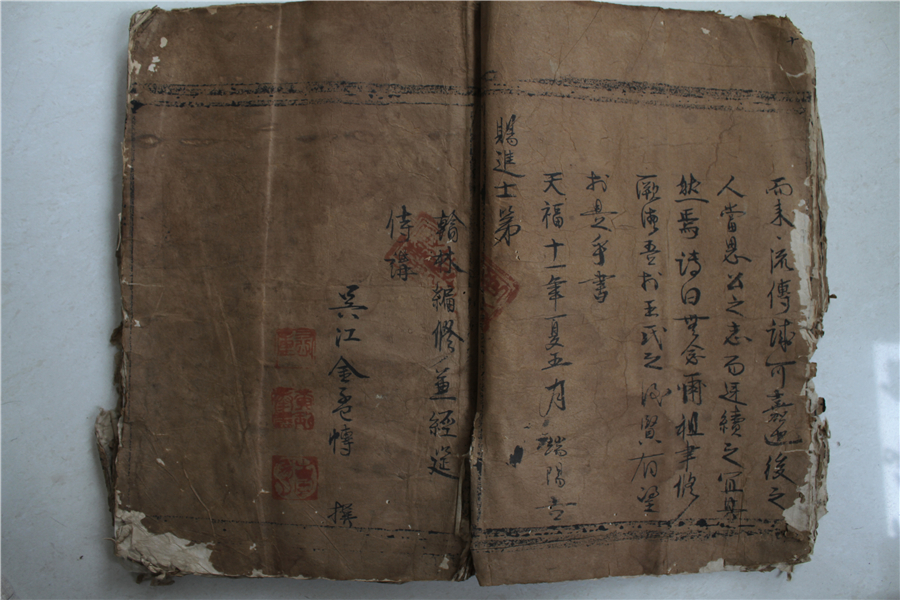 而来流傳誠可嘉也後之
人當思公之志而延續之宜典
然焉詩曰無念爾祖聿修
厥德吾於王氏之後賢有望
於是乎書
天福十一年夏五月端陽
賜進士第
翰林編修兼經筵
侍講
吳江金 撰